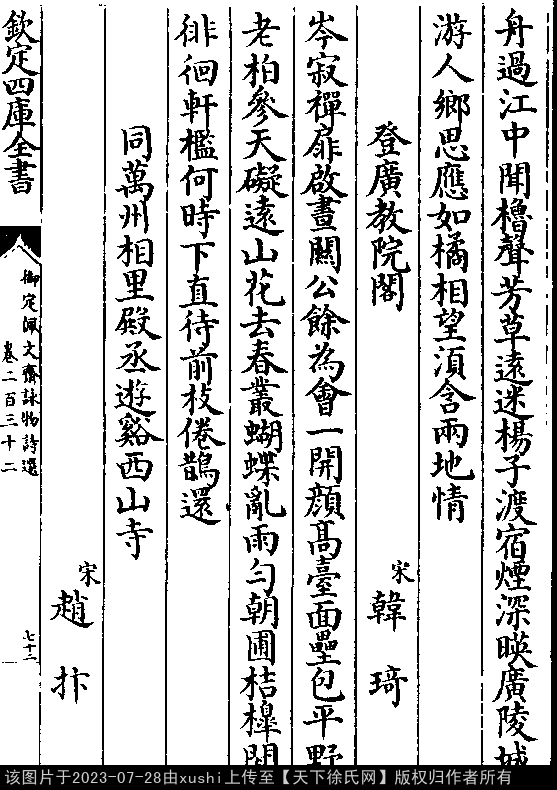 舟過江中聞櫓聲芳草遠迷楊子渡宿煙深暎廣陵城
游人鄉思應如橘相望須含兩地情
登廣教院閣
宋韓琦
岑寂禪扉啟晝關公餘為會一開顔高臺面壘包平野
老柏參天礙遠山花去春叢蝴蝶亂雨勻朝圃桔橰閒
徘徊軒檻何時下直待前枝倦鵲還
同萬州相里殿丞遊谿西山寺
宋趙抃
欽定四庫全書
御定佩文齋詠物詩選
卷二百三十二
七十二
该图片于2023-07-28由xushi上传至【天下徐氏网】版权归作者所有